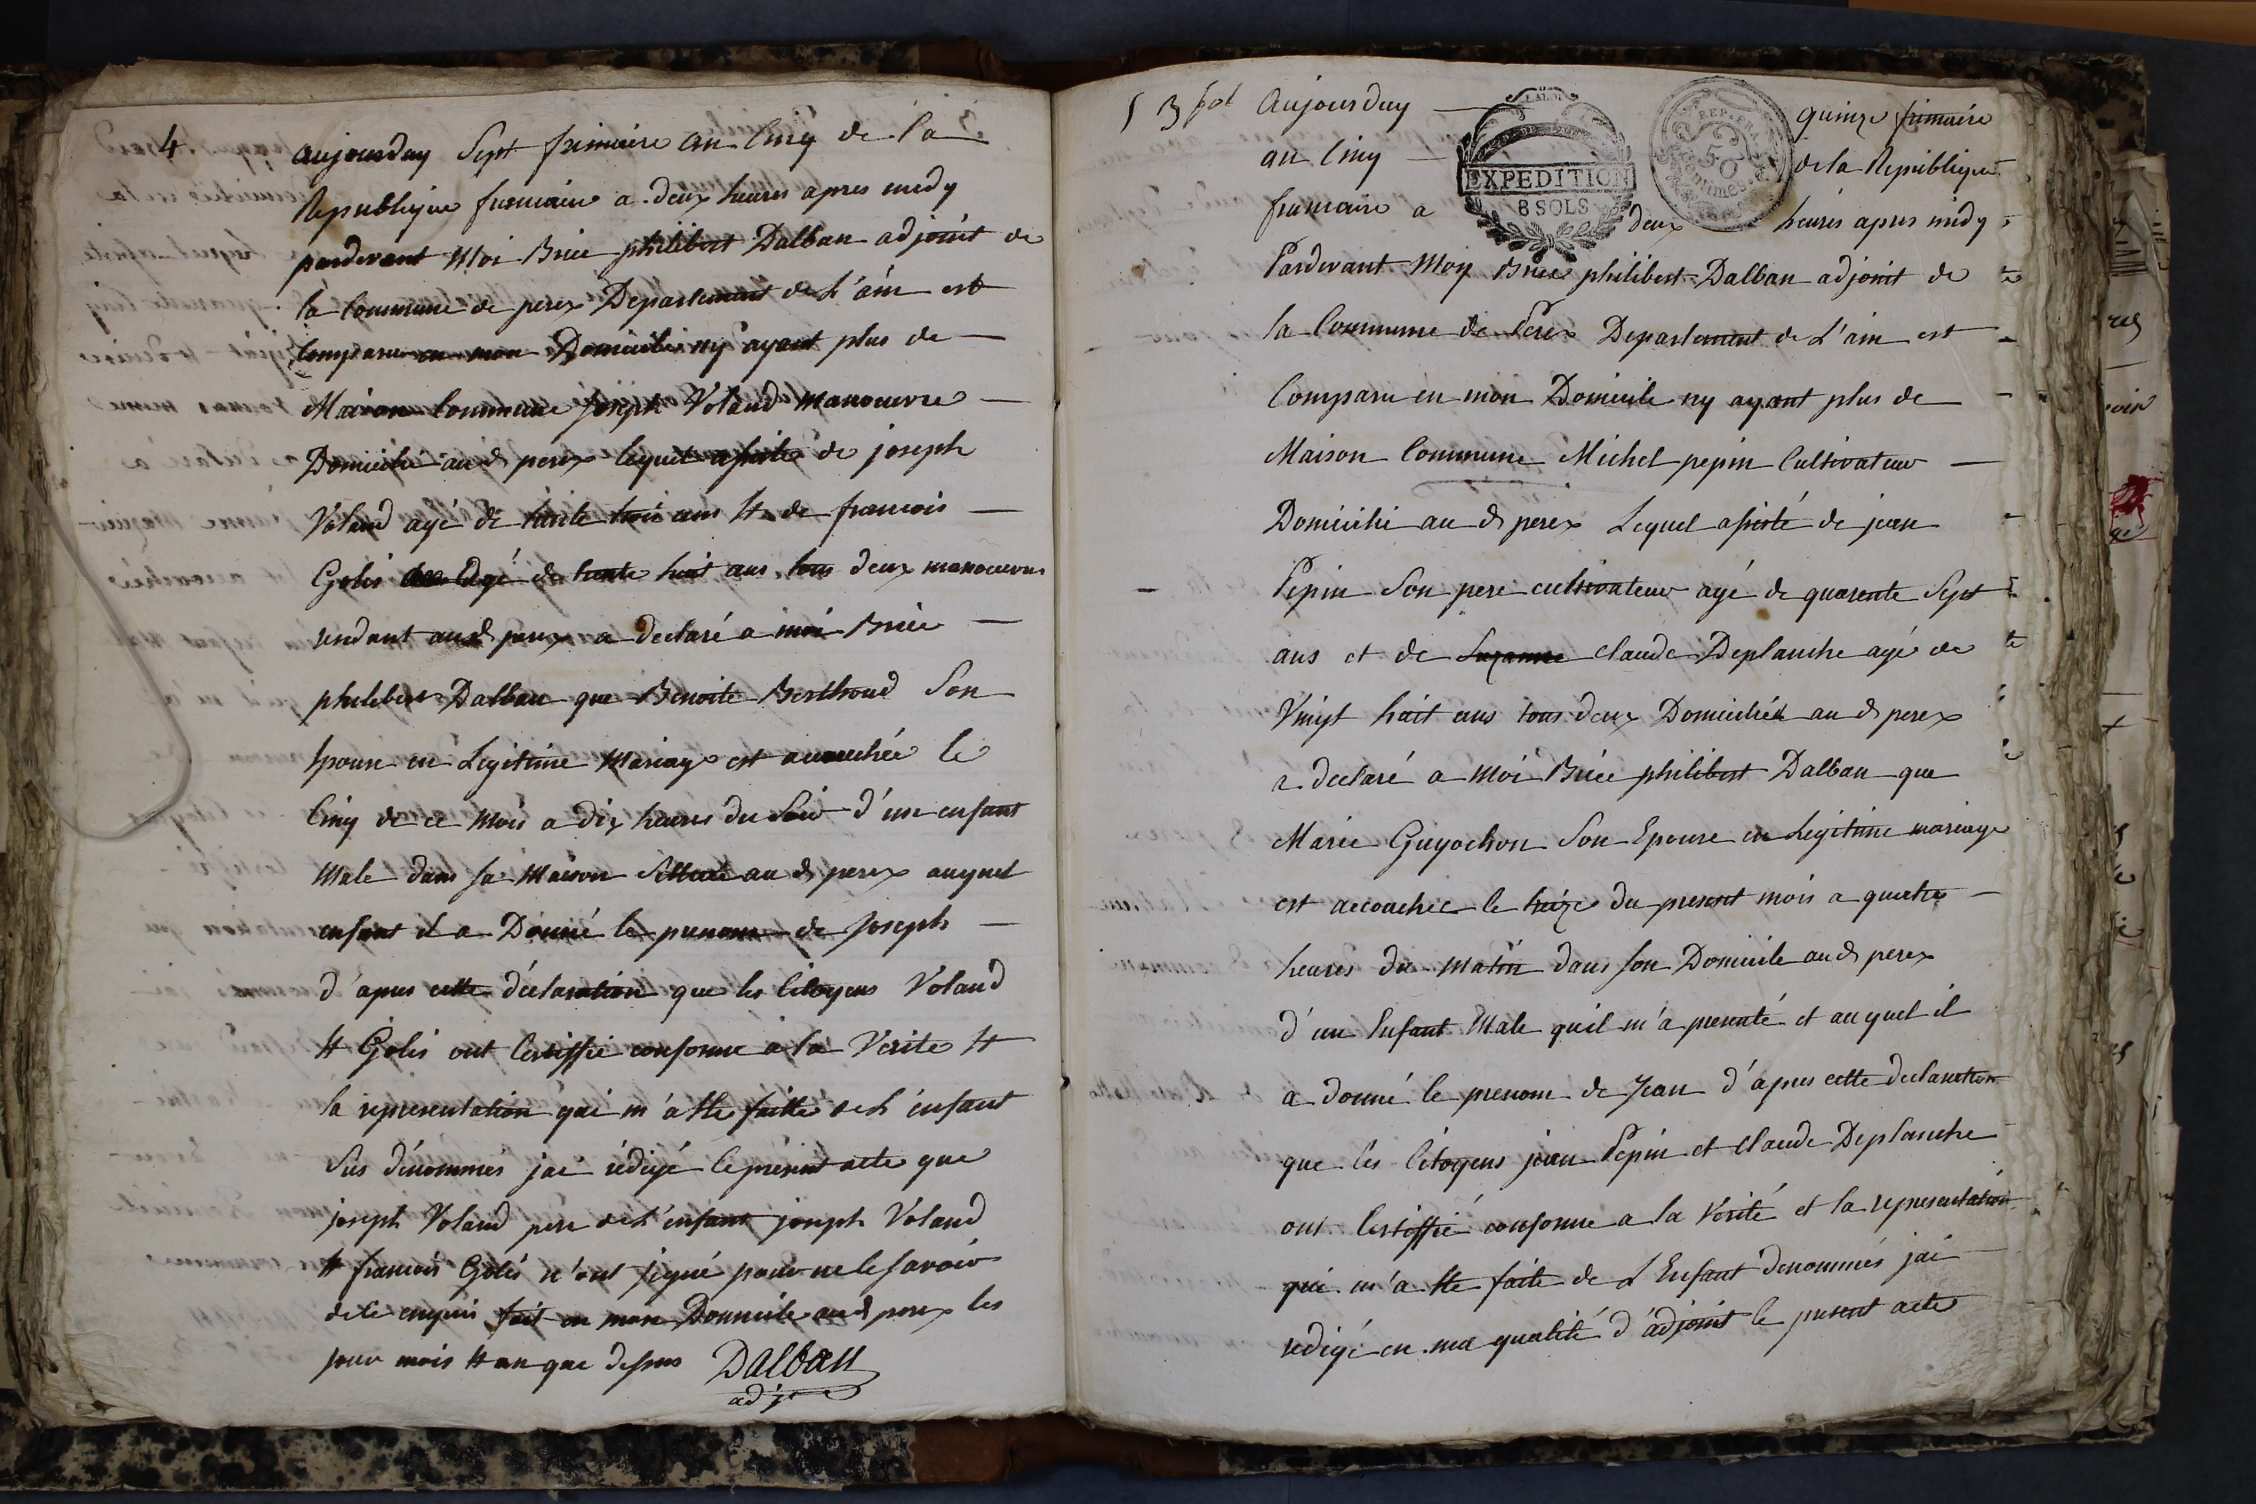 4
aujourduy Sept frimaire an Cinq de la
Republique francaise a deux heures apres midy
pardevant Moi Brice philibert Dalban adjoint de
la Commune de perex Departement de L'ain est
Comparu en mon Domicile ny ayant plus de
Maison Commune Joseph Voland manoeuvre
Domicilié au d. perex lequel assisté de joseph
Voland agé de trente trois ans & de francois
Golis agé de trente huit ans tous deux manoeuvres
rendant aud. perex a declaré a moi Brice
philibert Dalban que Benoite Berthoud Son
Epouse en Legitime Mariage est accouchée le
Cinq de ce mois a dix heures du Soir d'un enfant
Male dans sa Maison Sittuée au d. perex auquel
enfant il a Donné le prenom de Joseph
d'apres cette déclaration que les Citoyens Voland
& Golis ont Certiffié conforme a la Verité &
la representation qui m'a été faitte de L'enfant
Sus dénommés jai rédigé le présent acte que
joseph Voland pere de L'enfant joseph Voland
& francois Golis n'ont signé pour ne le savoir
de ce enquis fait en mon Domicile aud. perex les
jour mois & an que dessus Dalban
adjt
5 3 fol Aujourduy quinze frimaire
an Cinq de la Republique
francaise a deux heures apres midy
EXPEDITION
8 SOLS
REP. FRA.
50
Centimes.
Pardevant Moy Brice philibert Dalban adjoint de
la Commune de Perex Departement de L'ain est
Comparu en mon Domicile ny ayant plus de
Maison Commune Michel pepin Cultivateur
Domicilié au d. perex Lequel assisté de jean
Pepin Son pere cultivateur agé de quarente Sept
ans et de Suzanne claude Deplanche agé de
Vingt huit ans tous deux Domiciliés au d. perex
a declaré a Moi Brice philibert Dalban que
Marie Guyochon Son Epouse en Legitime mariage
est accouchée le treize du present mois a quatre
heures du matin dans son Domicile aud. perex
d'un Enfant Male quil m'a presenté et auquel il
a donné le prenom de Jean d'apres cette declaration
que les Citoyens jean Pepin et Claude Deplanche
ont Certiffié conforme a la Verité et la representation
qui m'a été faite de L'Enfant denommés jai
redigé en ma qualité d'adjoint le present acte